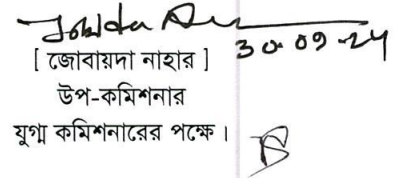 30-09-24
[ জোবায়দা নাহার ]
উপ-কমিশনার
যুগ্ম কমিশনারের পক্ষে।